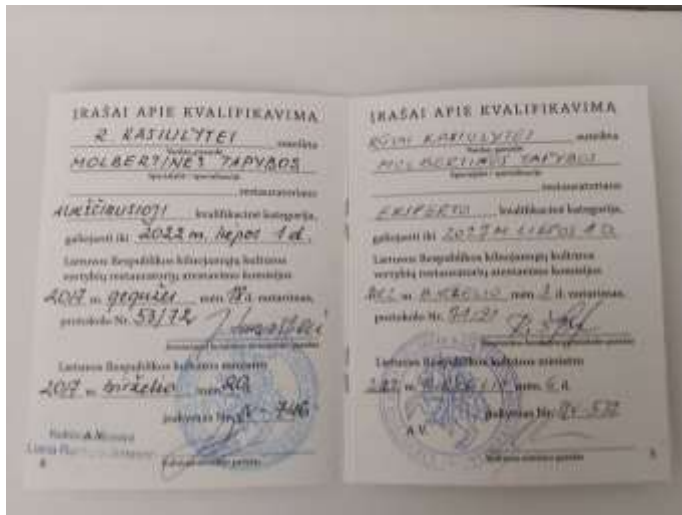 ĮRAŠAI APIE KVALIFIKAVIMĄ
R. KASIULYTEI suteikta
Vardas, pavardė
MOLBERTINĖS TAPYBOS
Specialybė / specializacija
restauratoriaus
AUKŠČIAUSIOJI kvalifikacinė kategorija,
galiojanti iki 2022 m. liepos 1 d.
Lietuvos Respublikos kilnojamųjų kultūros
vertybių restauratorių atestavimo komisijos
2017 m. gegužės mėn. 18 d. nutarimas,
protokolo Nr. 53/72
Lietuvos Respublikos kultūros ministro
2017 m. birželio mėn. 20 d.
įsakymas Nr. ĮV-746
A.V.
ĮRAŠAI APIE KVALIFIKAVIMĄ
KASIULYTEI suteikta
Vardas, pavardė
MOLBERTINĖS TAPYBOS
Specialybė / specializacija
restauratoriaus
EKSPERTO kvalifikacinė kategorija,
galiojanti iki 2027 M. LIEPOS 1 D.
Lietuvos Respublikos kilnojamųjų kultūros
vertybių restauratorių atestavimo komisijos
m. BIRŽELIO mėn. d. nutarimas,
protokolo Nr. 71/21
Lietuvos Respublikos kultūros ministro
m. BIRŽELIO mėn. 6 d.
įsakymas Nr. ĮV-532
A.V.